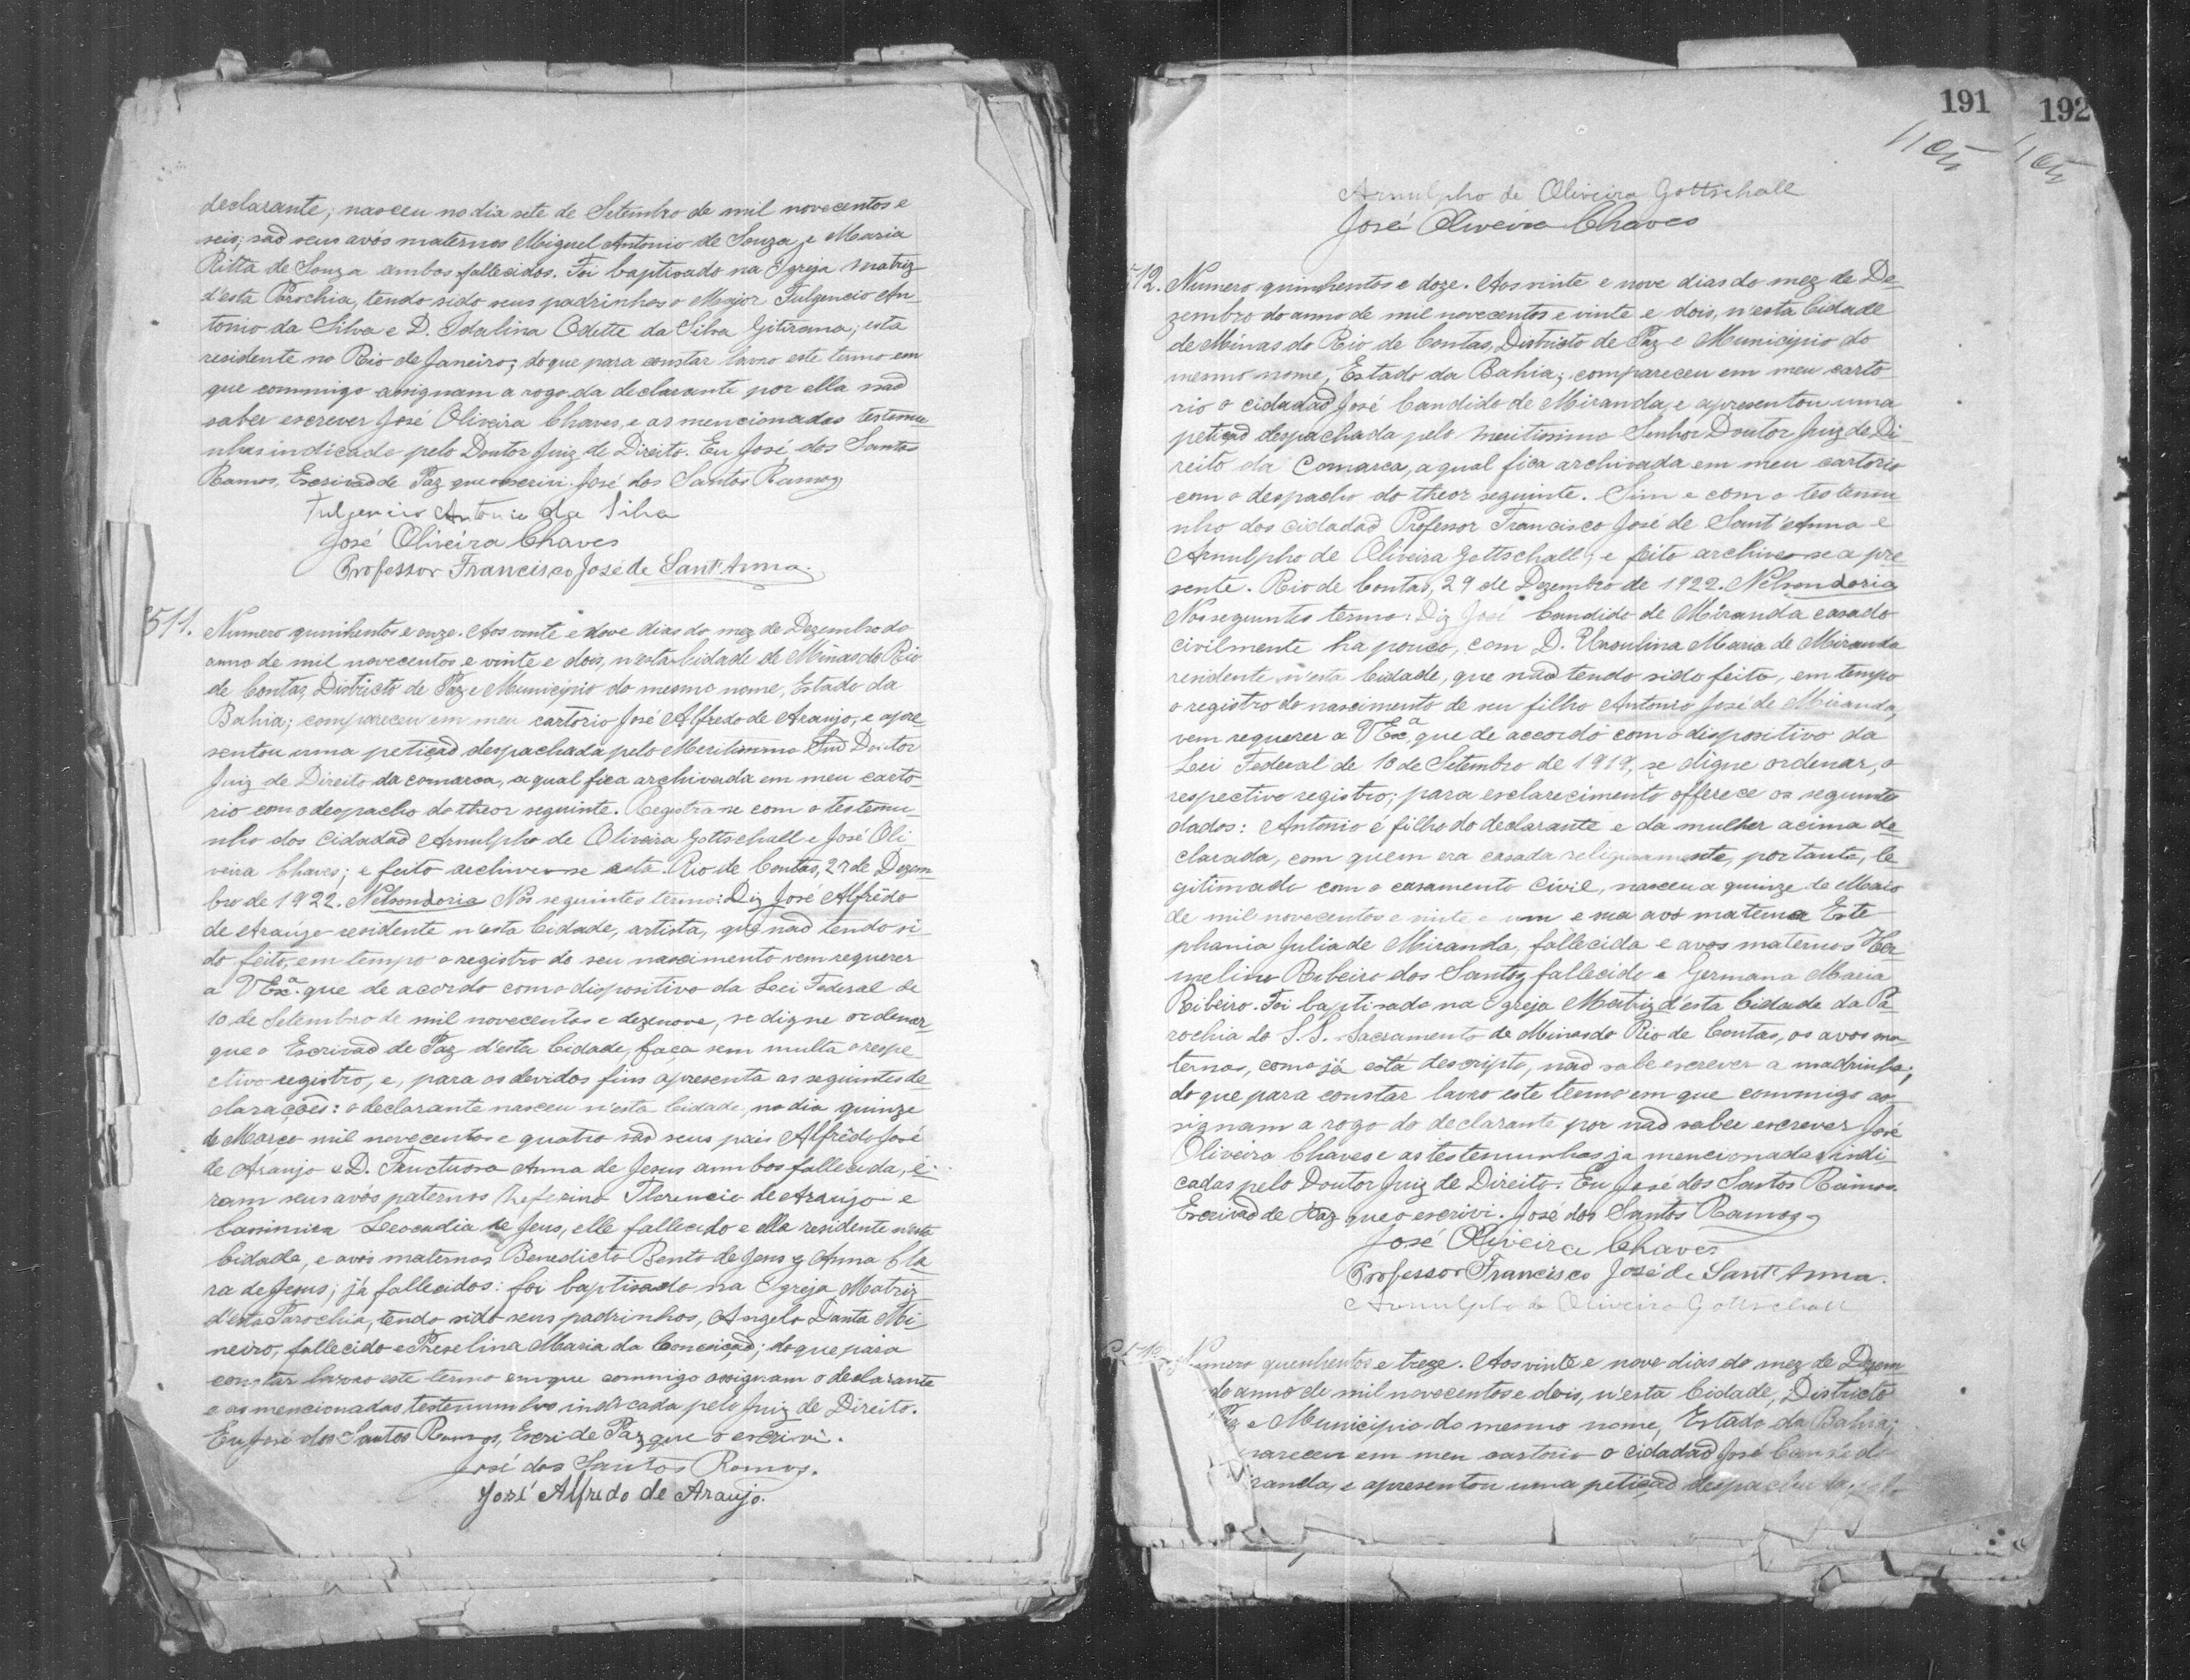 declarante; nasceu no dia sete de Setembro de mil novecentos e
seis; saõ seus avós maternos Miguel Antonio de Souza e Maria
Ritta de Souza ambos fallecidos. Foi baptisado na Igreja Matriz
d'esta Parochia, tendo sido seus padrinhos o Major Fulgencio An-
tonio da Silva e D. Idalina Odette da Silva Gitirana, esta
residente no Rio de Janeiro; do que para constar lavro este termo em
que commigo assignam a rogo da declarante por ella naõ
saber escrever José Oliveira Chaves, e as mencionadas testemu-
nhas indicado pelo Doutor Juiz de Direito. Eu José dos Santos
Ramos, Escrivaõ de Paz que escrevi. José dos Santos Ramos
Fulgencio Antonio da Silva
José Oliveira Chaves
Professor Francisco José de Sant'Anna.
511. Numero quinhentos e onze. Aos vinte e nove dias do mez de Dezembro do
anno de mil novecentos e vinte e dois, n'esta Cidade de Minas do Rio
de Contas, Districto de Paz e Municipio do mesmo nome, Estado da
Bahia; compareceu em meu cartorio José Alfredo de Araujo, e apre-
sentou uma petiçaõ despachada pelo Meritissimo Snr Doutor
Juiz de Direito da comarca, a qual fica archivada em meu carto-
rio com o despacho do theor seguinte. Registra-se com o testemu-
nho dos Cidadaõ Arnulpho de Oliveira Gottschall e José Oli-
veira Chaves; e feito archive-se esta. Rio de Contas, 29 de Dezem-
bro de 1922. Nelson Doria Nos seguintes termo: Diz José Alfrêdo
de Araújo residente n'esta Cidade, artista, que naõ tendo si-
do feito, em tempo o registro do seu nascimento vem requerer
a V Exª. que de acordo com o dispositivo da Lei Federal de
10 de Setembro de mil novecentos e dezenove, se digne ordenar
que o Escrivaõ de Paz d'esta Cidade, faça sem multa o respe-
ctivo registro, e, para os devidos fins apresenta as seguintes de-
clarações: o declarante nasceu n'esta Cidade, no dia quinze
de Março mil novecentos e quatro saõ seus pais Alfrêdo José
de Araujo e D. Fructuosa Anna de Jesus ambos fallecida, é-
ram seus avós paternos Zeferino Florencio de Araujo e
Leocadia de Jesus, elle fallecido e ella residente n'esta
Cidade, e avós maternos Benedicto Bento de Jesus e Anna Cla-
ra de Jesus; já fallecidos: foi baptisado na Igreja Matriz
d'esta Parochia, tendo sido seus padrinhos, Angelo Danta Mi-
neiro, fallecido e Maria da Conceiçaõ; do que para
constar lavro este termo em que commigo assignam o declarante
e as mencionadas testemunhas indicada pelo Juiz de Direito.
Eu José dos Santos Ramos, Escri de Paz que o escrivi.
José dos Santos Ramos.
José Alfredo de Araujo.
191
192
Arnulpho de Oliveira Gottschall
José Oliveira Chaves
512. Numero quinhentos e doze. Aos vinte e nove dias do mez de De-
zembro do anno de mil novecentos e vinte e dois, n'esta Cidade
de Minas do Rio de Contas, Districto de Paz e Municipio do
mesmo nome, Estado da Bahia; compareceu em meu carto-
rio o cidadaõ José Candido de Miranda, e apresentou uma
petiçaõ despachada pelo Meritissimo Senhor Doutor Juiz de Di-
reito da Comarca, a qual fica archivada em meu cartorio
com o despacho do theor seguinte. Sim e com o testemu-
nho dos cidadaõ Professor Francisco José de Sant'Anna e
Arnulpho de Oliveira Gottschall, e feito archive-se a pre-
sente. Rio de Contas, 29 de Dezembro de 1922. Nelson Doria
Nos seguintes termo: Diz José Candido de Miranda casado
civilmente ha pouco, com D. Ursulina Maria de Miranda
residente n'esta Cidade, que naõ tendo sido feito, em tempo
o registro do nascimento de seu filho Antonio José de Miranda,
vem requerer a V Exª. que de accordo com o dispositivo da
Lei Federal de 10 de Setembro de 1919, se digne ordenar, o
respectivo registro; para esclarecimento offerece os seguintes
dados: Antonio é filho do declarante e da mulher acima de-
clarada, com quem era casada religiosamente, portanto, le-
gitimado com o casamento Civil, nasceu a quinze de Maio
de mil novecentos e vinte e um e sua avó materna Este-
phania Julia de Miranda, fallecida e avos maternos Her-
melino Ribeiro dos Santos fallecido e Germana Maria
Ribeiro. Foi baptisado na Igreja Matriz d'esta Cidade da Pa-
rochia do S.S. Sacramento de Minas do Rio de Contas, os avos ma-
ternos, como já está descripto, naõ sabe escrever a madrinha;
do que para constar lavro este termo em que commigo as-
signam a rogo do declarante por naõ saber escrever José
Oliveira Chaves e as testemunhas ja mencionadas indi-
cadas pelo Doutor Juiz de Direito. Eu José dos Santos Ramos
Escrivaõ de Paz que o escrivi. José dos Santos Ramos
José Oliveira Chaves
Professor Francisco José de Sant'Anna.
Arnulpho de Oliveira Gottschall
Numero quenhentos e treze. Aos vinte e nove dias do mez de Dezem-
do anno de mil novecentos e dois, n'esta Cidade, Districto
Paz e Municipio do mesmo nome, Estado da Bahia;
pareceu em meu cartorio o cidadaõ José Candido
randa, e apresentou uma petiçaõ despachada